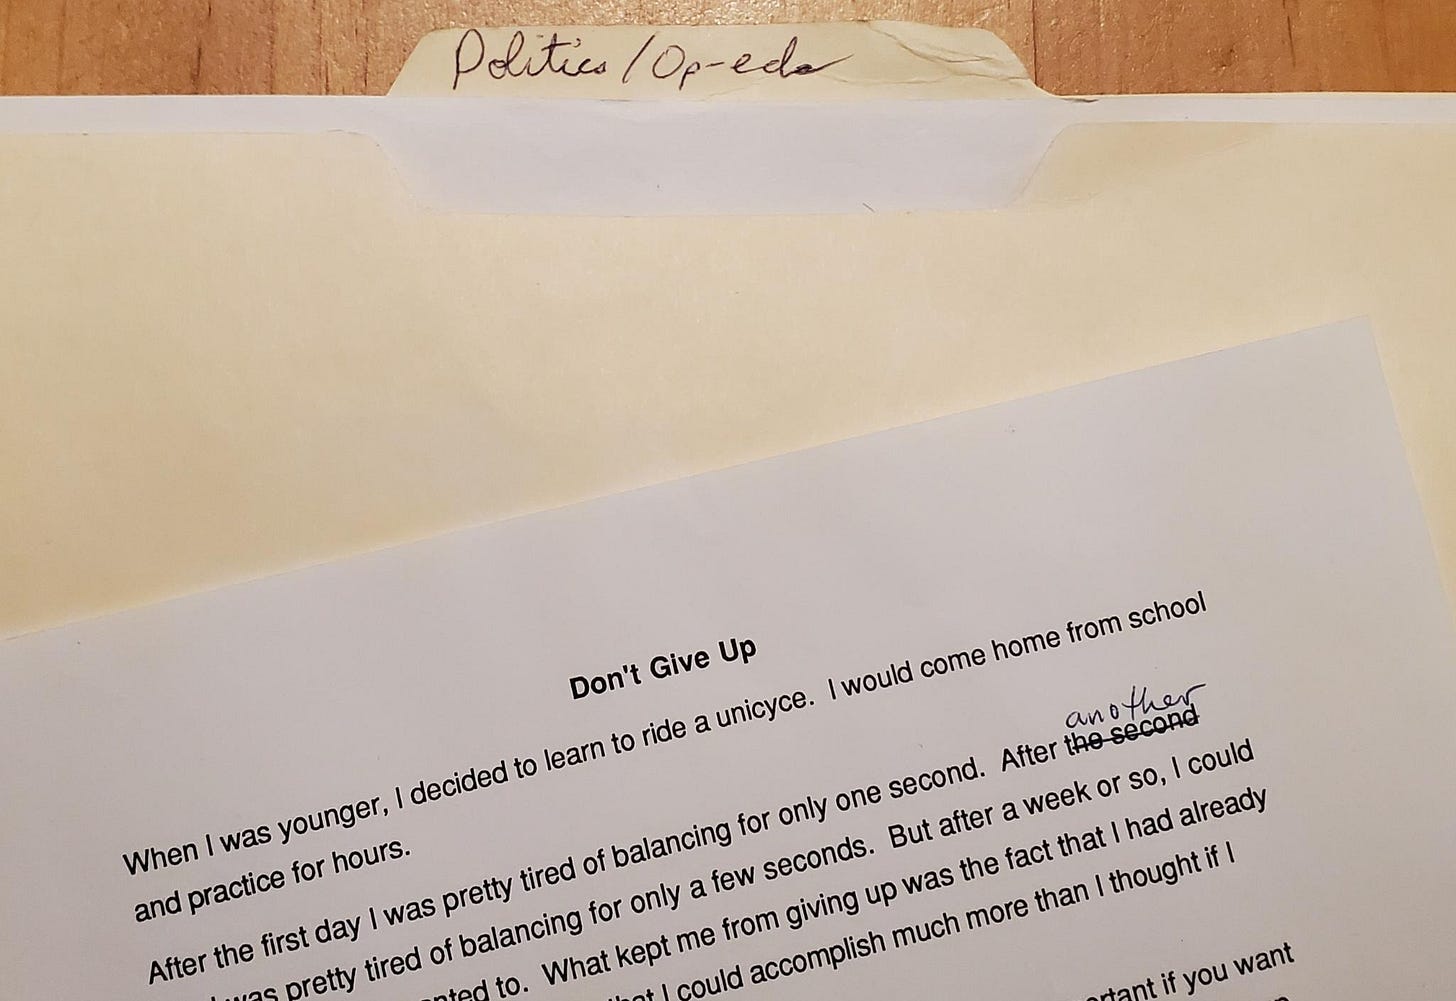 Politics/Op-eds
Don't Give Up
When I was younger, I decided to learn to ride a unicyce. I would come home from school
and practice for hours.
another
After the first day I was pretty tired of balancing for only one second. After the second
I was pretty tired of balancing for only a few seconds. But after a week or so, I could
to. What kept me from giving up was the fact that I had already
that I could accomplish much more than I thought if I
if you want